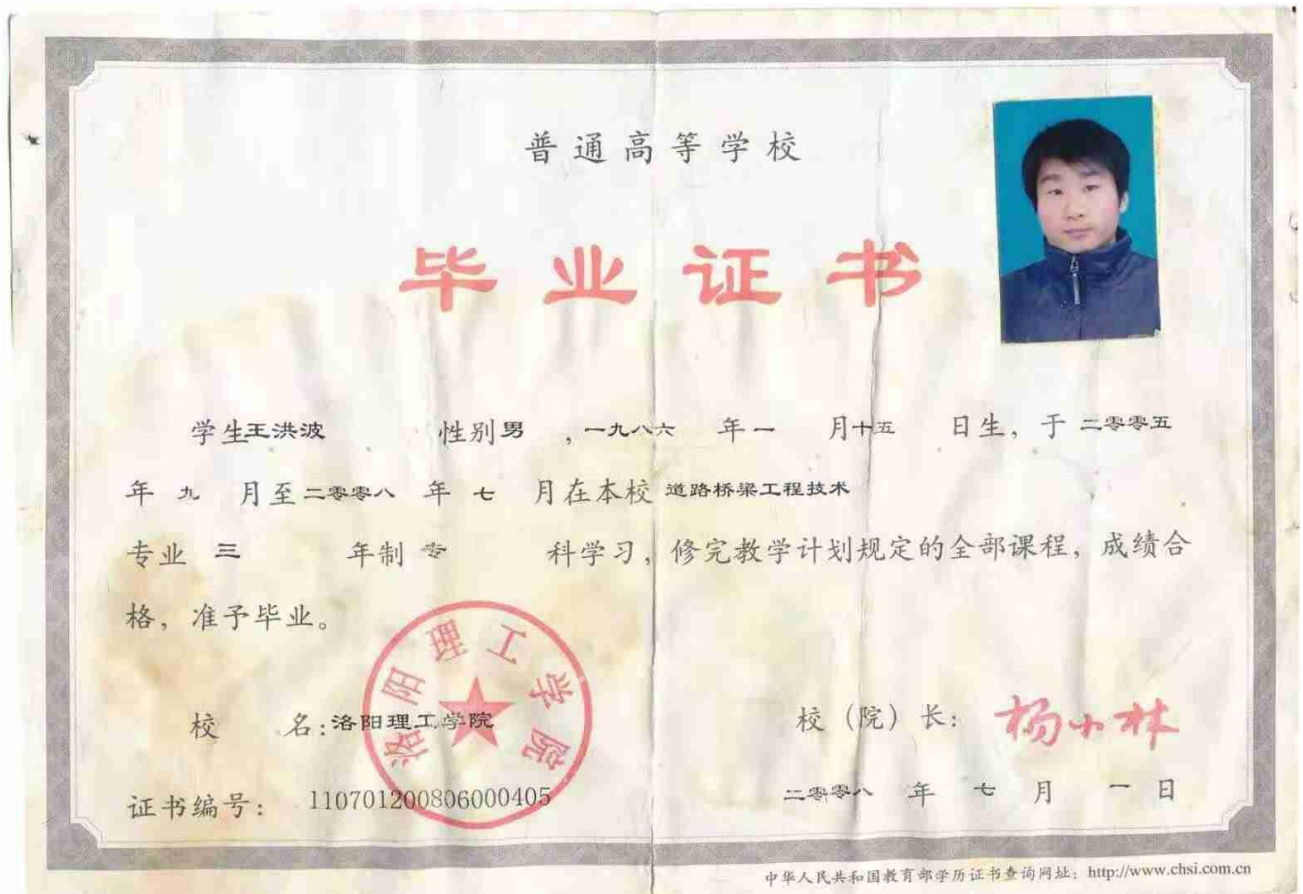 普通高等学校
毕业证书
学生王洪波 性别男 ,一九八六 年一 月十五 日生, 于二零零五
年 九 月至二零零八 年 七 月在本校 道路桥梁工程技术
专业 三 年制 专 科学习, 修完教学计划规定的全部课程, 成绩合
格, 准予毕业。
洛阳理工学院
校 名:洛阳理工学院
校（院）长: 杨小林
证书编号: 110701200806000405
二零零八 年 七 月 一 日
中华人民共和国教育部学历证书查询网址: http://www.chsi.com.cn